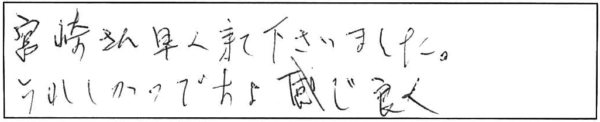 宮崎さん早く来て下さいました。
うれしかつですよ感じ良く